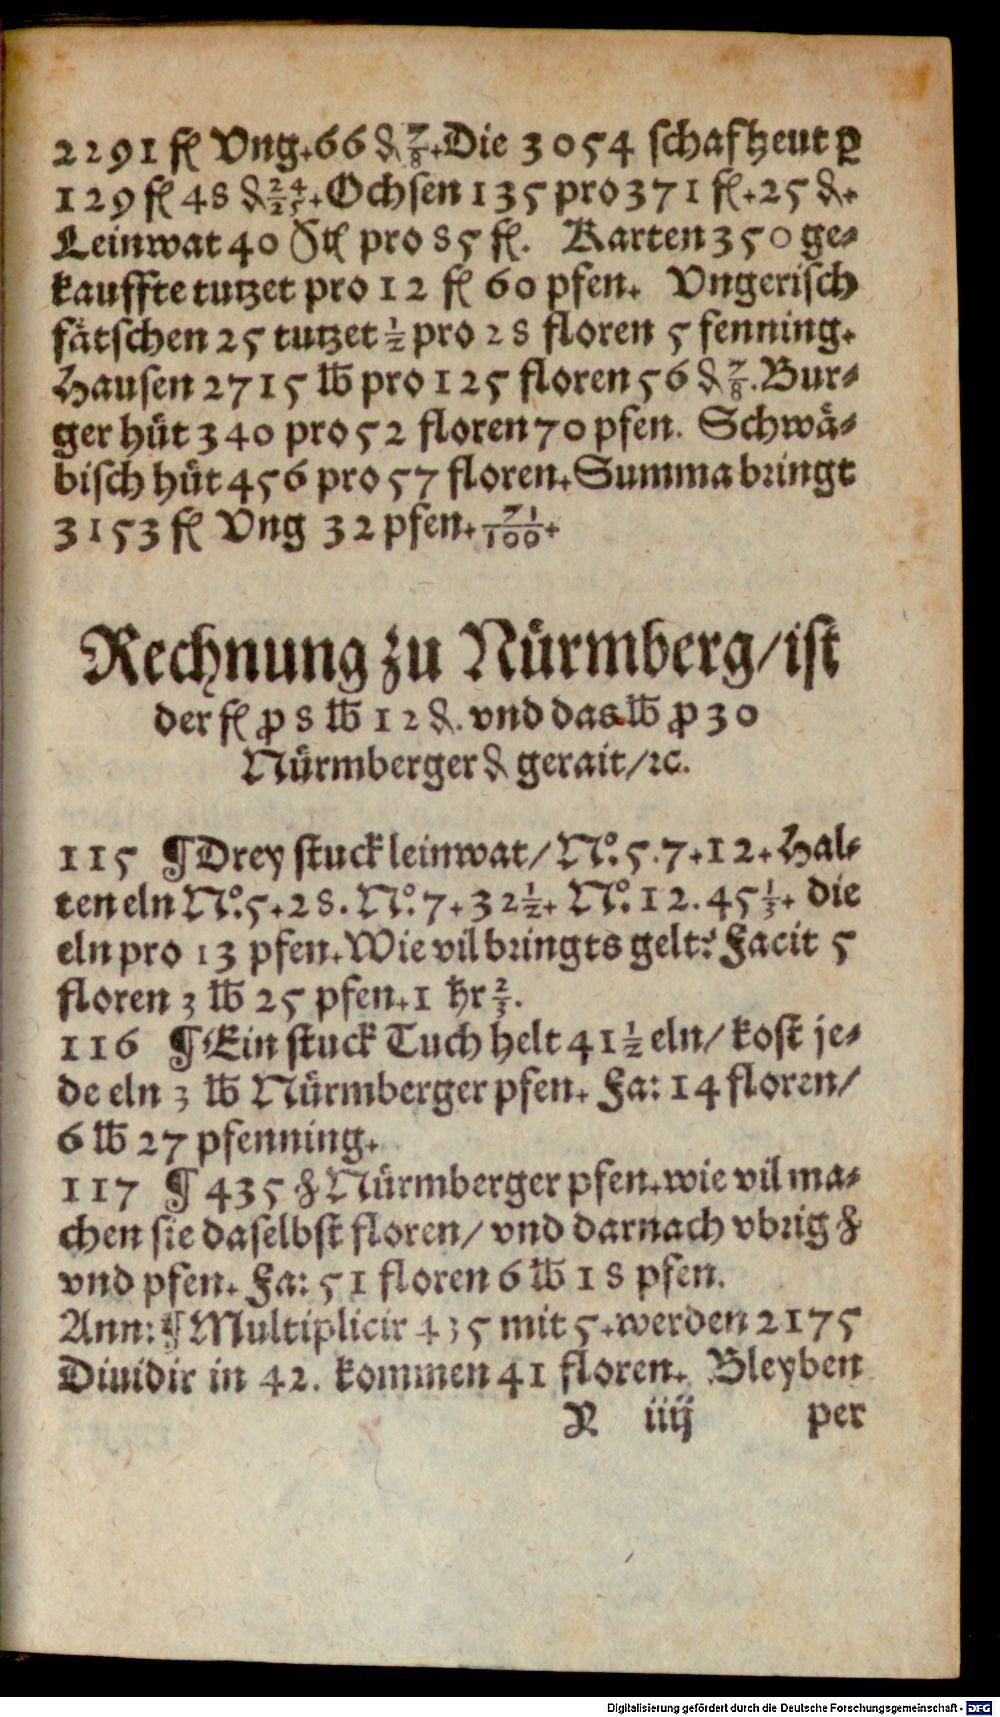 2291 fl Vng.66 ₰ 7/8.Die 3054 schafheut ꝑ
129 fl 48 ₰ 24/25.Ochsen 135 pro 371 fl.25 ₰.
Leinwat 40 Stl pro 85 fl. Karten 350 ge-
kauffte tutzet pro 12 fl 60 pfen. Vngerisch
fåtschen 25 tutzet ½ pro 28 floren 5 fenning.
Hausen 2715 ℔ pro 125 floren 56 ₰ 7/8. Bur-
ger hüt 340 pro 52 floren 70 pfen. Schwå-
bisch hüt 456 pro 57 floren.Summa bringt
3153 fl Vng 32 pfen. 71/100.
Rechnung zu Nürmberg/ist
der fl ꝓ 8 ℔ 12 ₰. vnd das ℔ ꝓ 30
Nürmberger ₰ gerait/ꝛc.
115 ¶ Drey stuck leinwat/ No. 5.7.12. Hal-
ten eln No.5.28. No.7.32½. No.12.45⅓. die
eln pro 13 pfen.Wie vil bringts gelt? Facit 5
floren 3 ℔ 25 pfen.1 hr ⅔.
116 ¶ Ein stuck Tuch helt 41½ eln/ kost je-
de eln 3 ℔ Nürmberger pfen. Fa: 14 floren/
6 ℔ 27 pfenning.
117 ¶ 435 ß Nürmberger pfen.wie vil ma-
chen sie daselbst floren/ vnd darnach vbrig ß
vnd pfen. Fa: 51 floren 6 ℔ 18 pfen.
Ann: ¶ Multiplicir 435 mit 5.werden 2175
Diuidir in 42. kommen 41 floren. Bleyben
iiij per
Digitalisierung gefördert durch die Deutsche Forschungsgemeinschaft - DFG